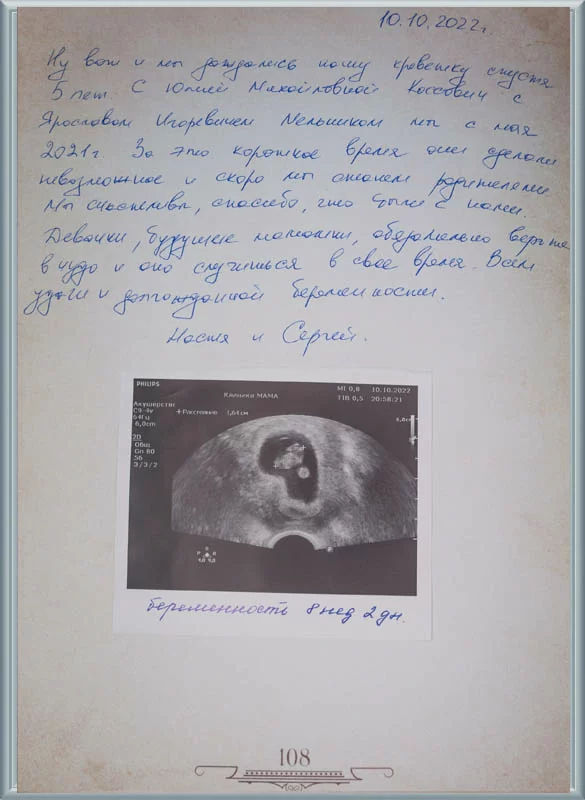 10.10.2022г.
Ну вот и мы дождались нашу креветку спустя
5 лет. С Юлией Михайловной Коссович с
Ярославом Игоревичем Мельником мы с мая
2021г. За это короткое время они сделали
невозможное и скоро мы станем родителями.
Мы счастливы, спасибо, что были с нами.
Девочки, будущие мамочки, обязательно верьте
в чудо и оно случишься в свое время. Всем
удачи и долгожданной беременности.
Настя и Сергей.
PHILIPS
Клиника МАМА
MI 0,8 10.10.2022
TIB 0,5 20:58:21
Акушерство
C9-4v
64Гц
6,0cm
+Расстояние 1,64см
2D
Общ.
Gn 80
56
3/3/2
P R
беременность 8 нед 2 дн.
108